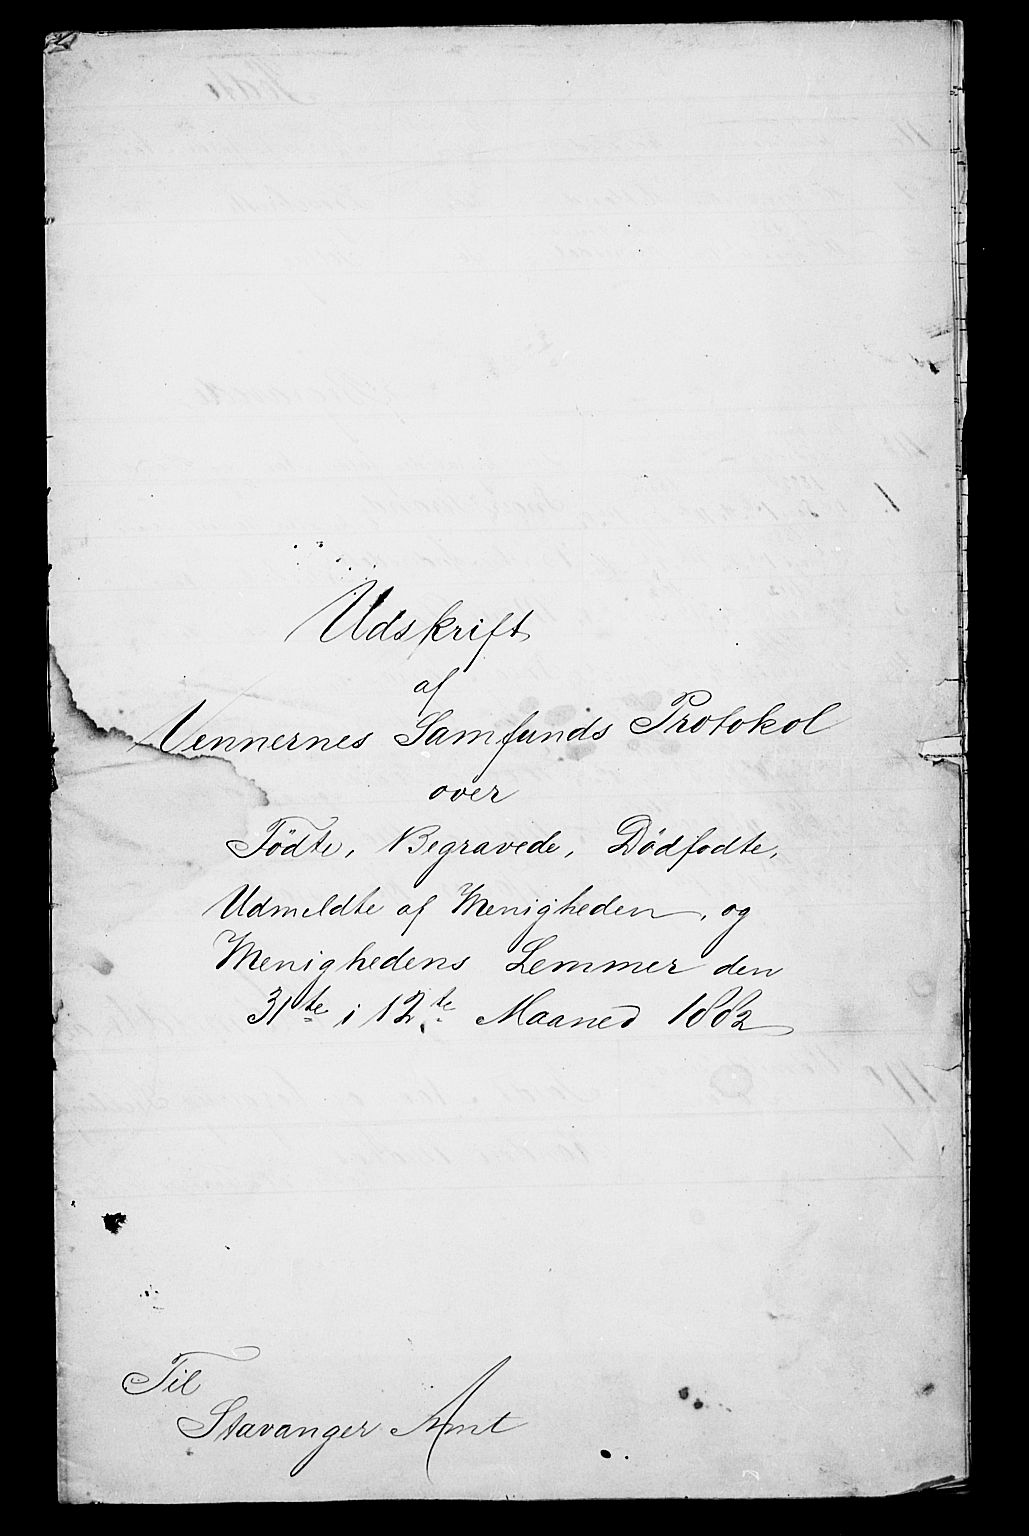 Udskrift
af
Vennernes Samfunds Protokol
over
Födte, Begravede, Dödfodte,
Udmeldte af Menigheden, og
Menighedens Lemmer den
31te i 12te Maaned 1882
Til
Stavanger Amt